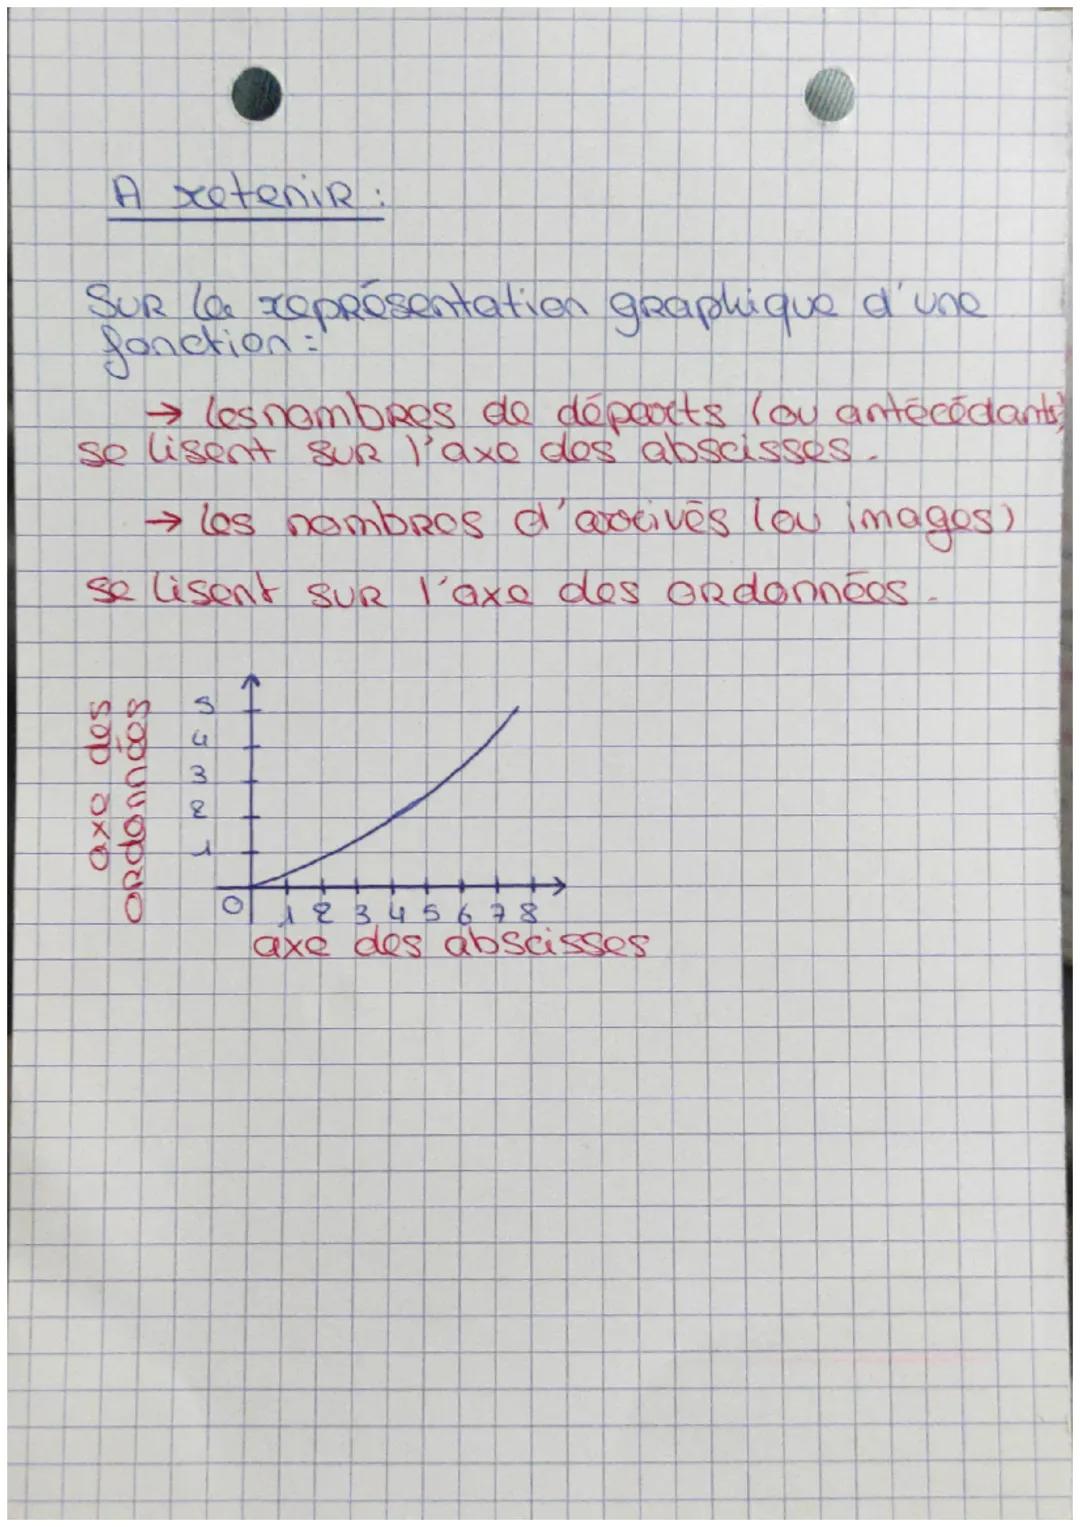 A retenir :
Sur la représentation graphique d'une
fonction :
→ les nombres de départs (ou antécédants)
se lisent sur l'axe des abscisses.
→ les nombres d'arrivés (ou images)
se lisent sur l'axe des ordonnées.
axe des
ordonnées
5
4
3
2
1
0 1 2 3 4 5 6 7 8
axe des abscisses